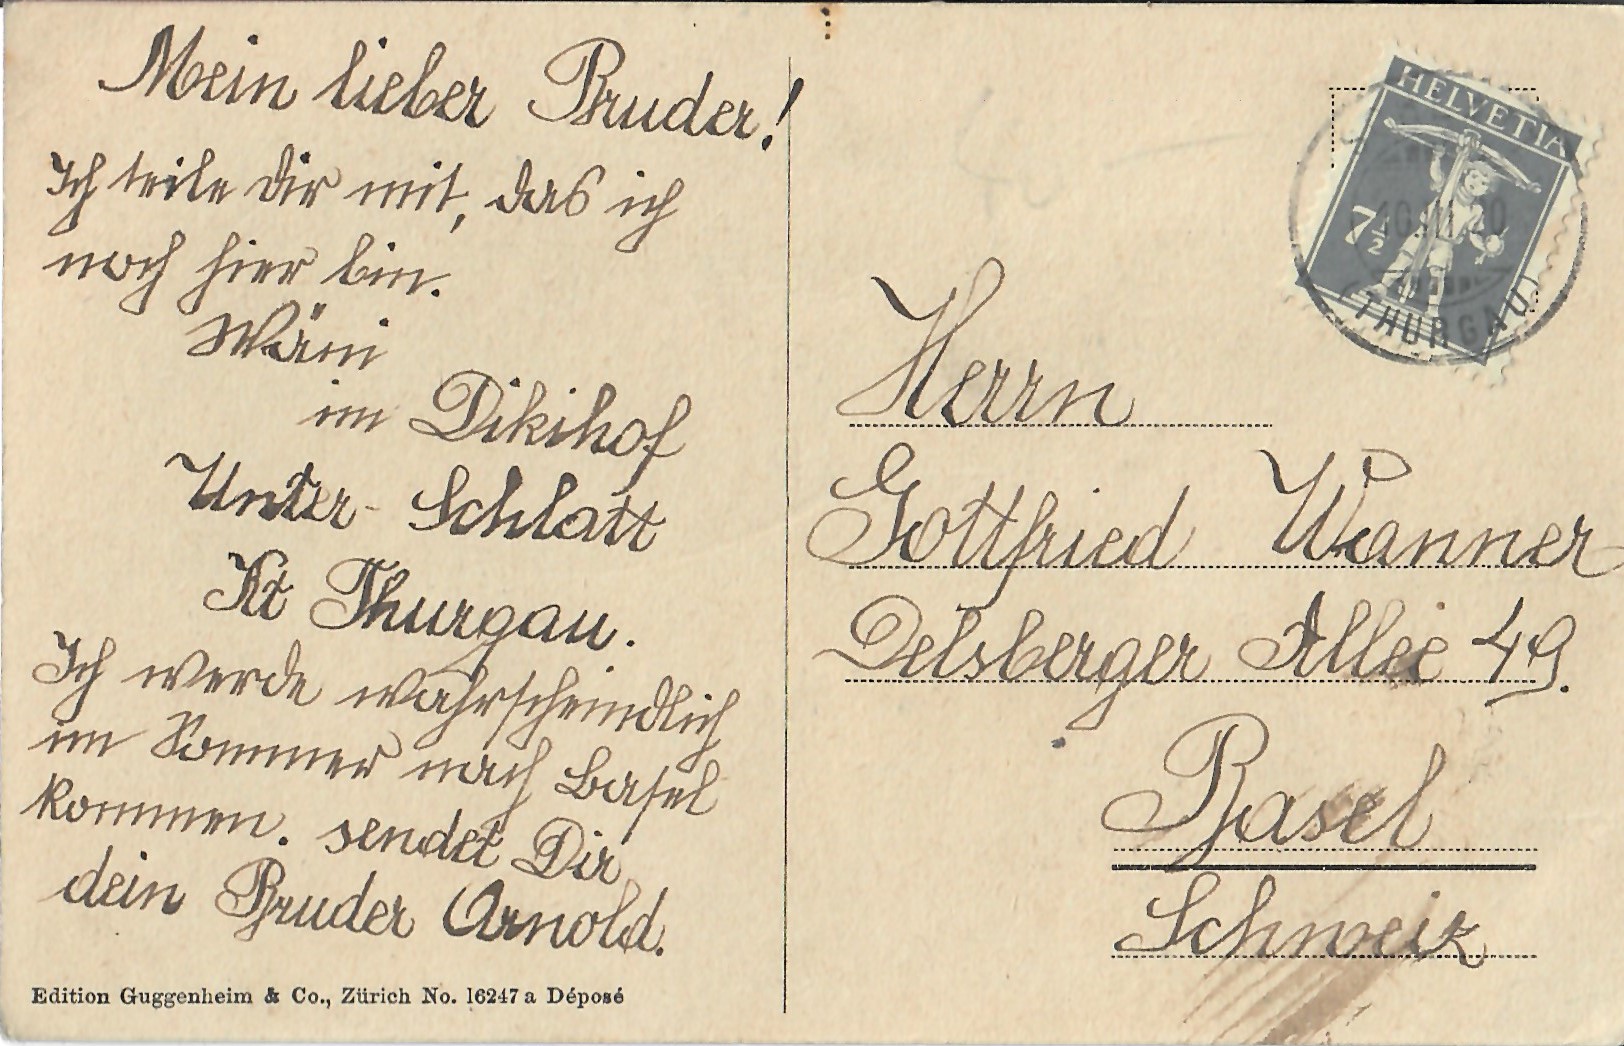 Mein lieber Bruder!
Ich teile Dir mit, das ich
noch hier bin.
im Dikihof
Unter-Schlatt
Kt Thurgau.
Ich werde wahrscheindlich
im Sommer nach Basel
kommen. sendet Dir
dein Bruder Arnold.
Edition Guggenheim & Co., Zürich No. 16247a Déposé
HELVETIA
7½
(THURGAU)
Herrn
Gottfried Wanner
Delsberger Allee 49.
Basel
Schweiz